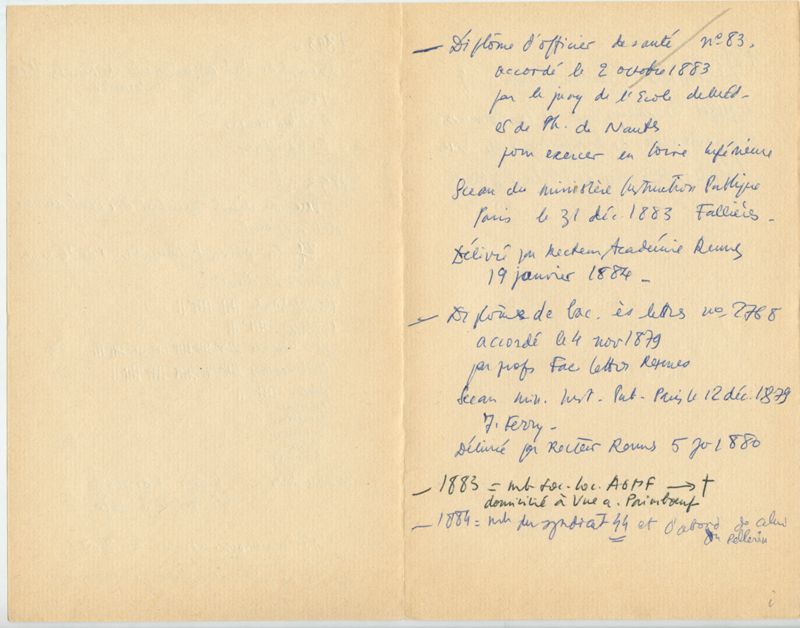 — Diplôme d'officier de santé n° 83,
accordé le 2 octobre 1883
par le jury de l'Ecole de Méd-
et de Ph. de Nantes
pour exercer en Loire Inférieure
Sceau du ministère Instruction Publique
Paris le 31 déc. 1883 Fallières -
Délivré par Recteur Académie Rennes
19 janvier 1884 -
— Diplôme de bac. ès lettres no 2768
accordé le 4 nov 1879
par profs Fac lettres Rennes
Sceau min. Inst. Pub - Paris le 12 déc. 1879
J. Ferry -
Délivré par Recteur Rennes 5 1880
— 1883 = mb soc. loc. AGMF → †
domicilié à Vue a. Paimboeuf
— 1884 = mb du syndicat 44 et d'abord de celui
du Pellerin